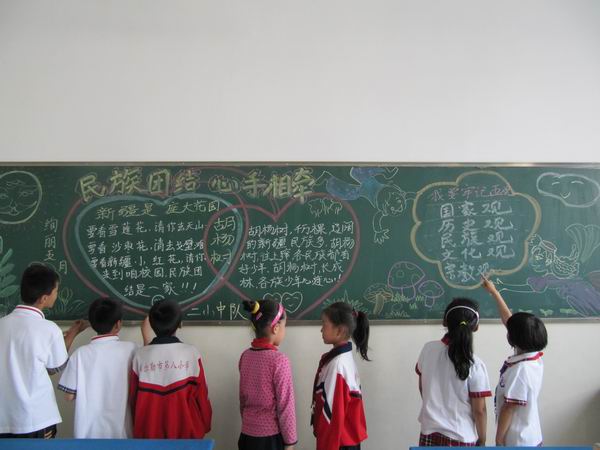 民族团结 心手相牵
绚丽五月
新疆是座大花园
要看雪莲花,请你去天山
要看沙枣花,
要看新疆小红花,请你
来到咱校园,民族团
结是一家!!!
胡杨树
胡杨树,千万棵,辽阔
的新疆民族多,胡杨
树
好少年,胡杨树,长成
林,各族少年心连心!!
二小中队
国家观
历史观
民族观
文化观
宗教观